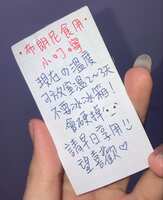 ·布朗尼食用
小叮嚀·
現在の溫度
可放室溫2~3天
不要冰冰箱!
會硬掉
請早日享用!!
望喜歡♡